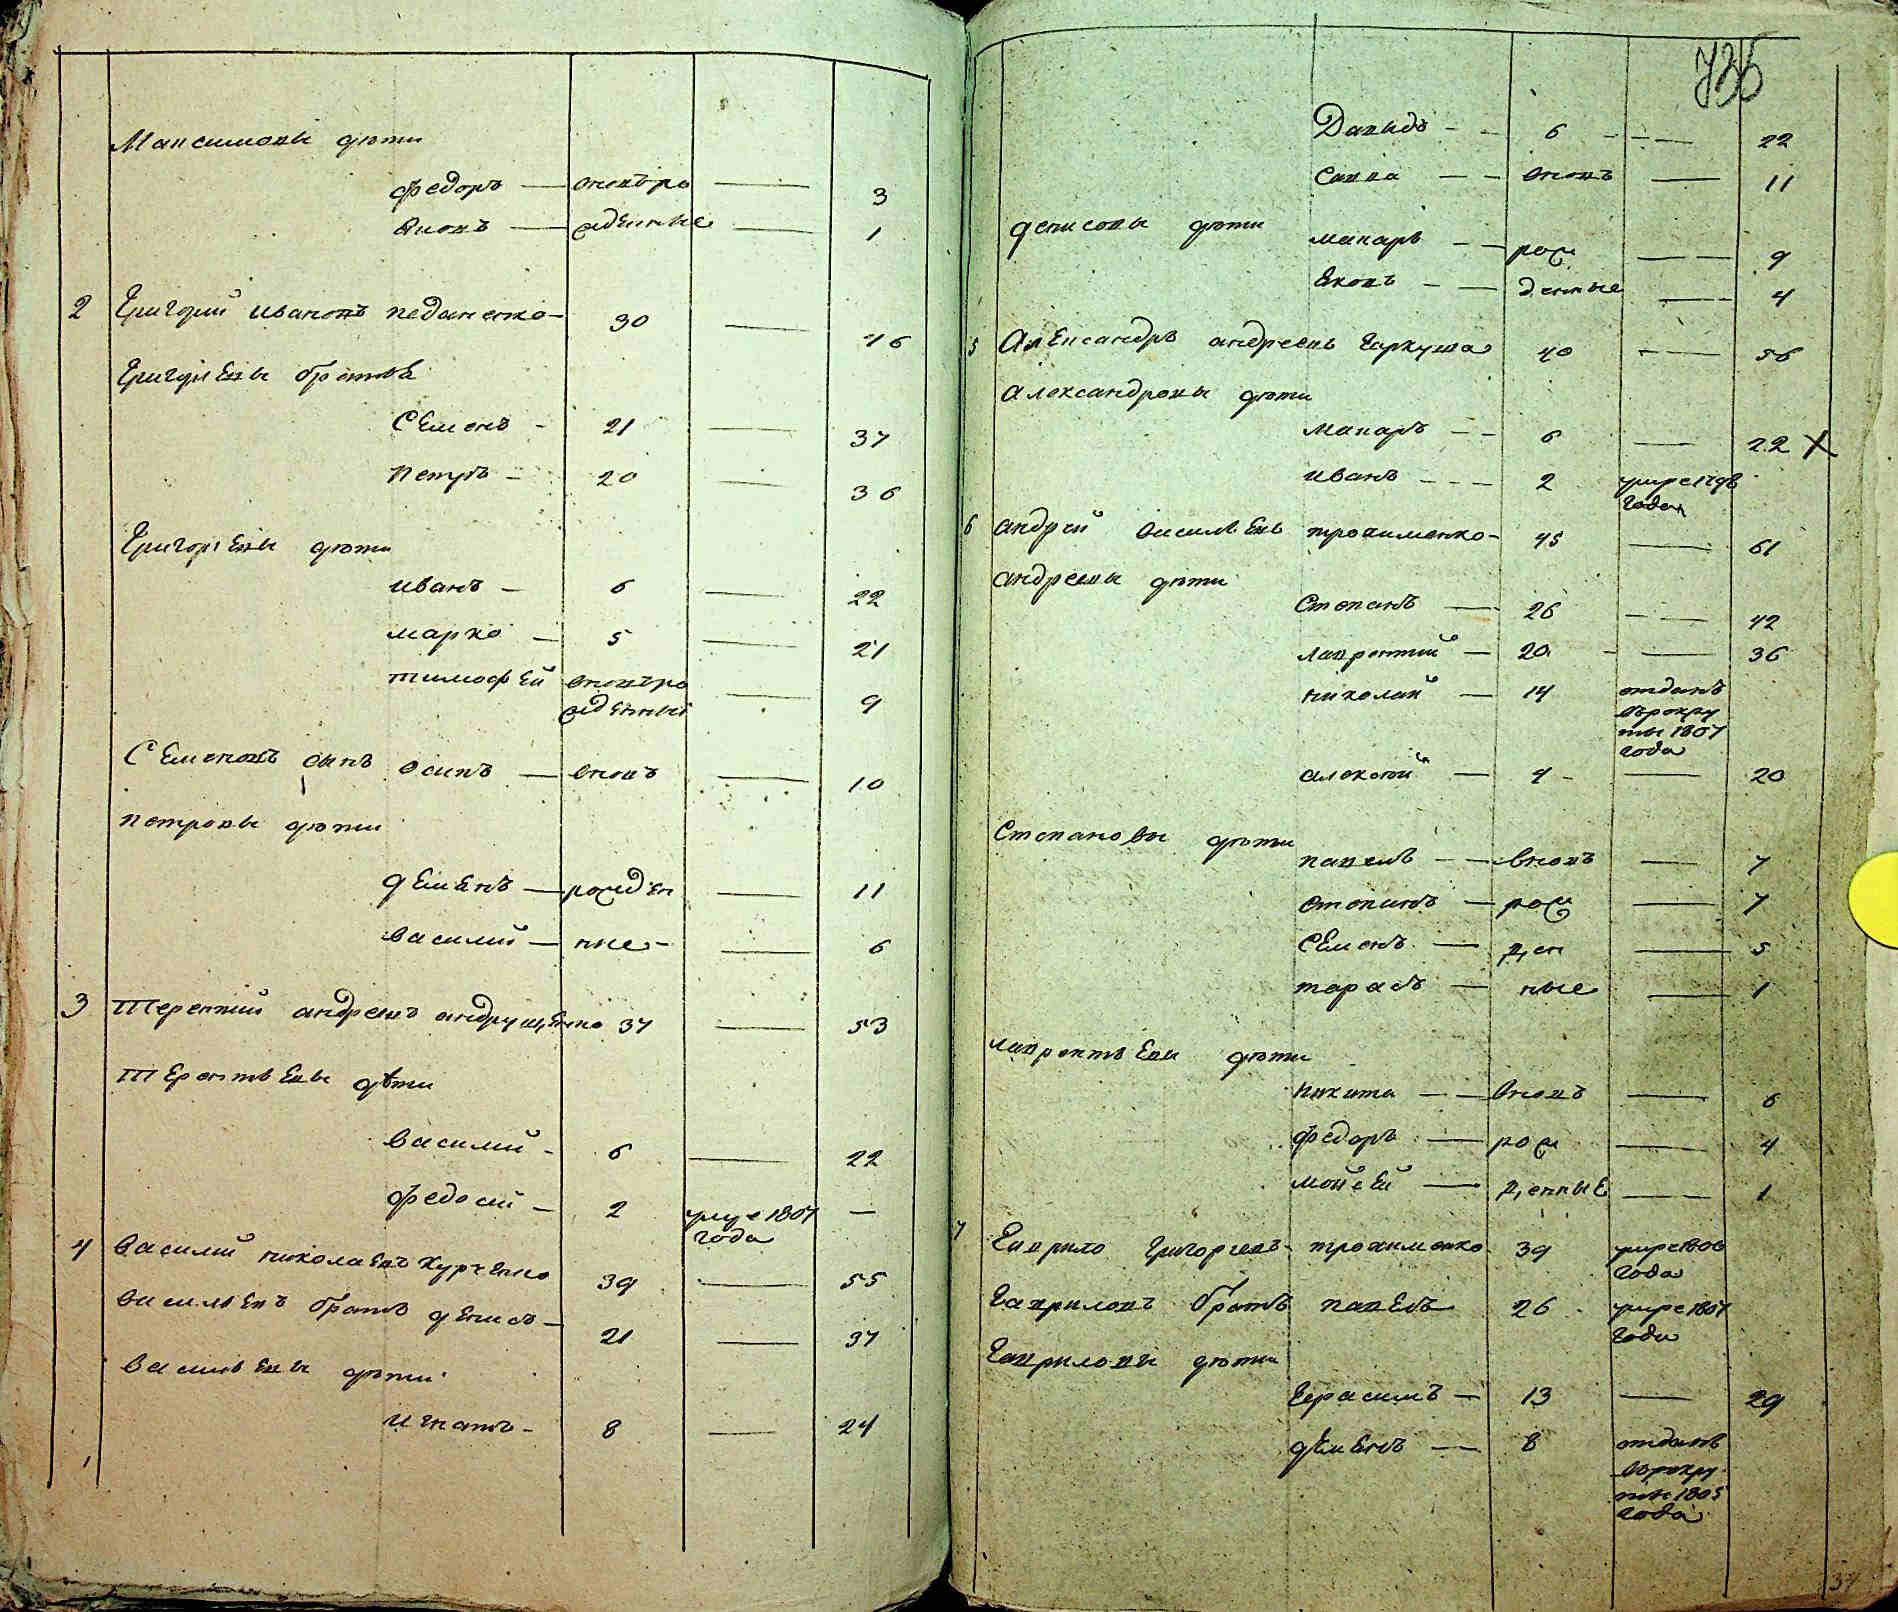 Максимовы дѣти
Федоръ — вновъро — 3
Яковъ — жденные — 1
2 Григорий Ивановъ Педаненко — 30 — 46
Григорьевы братья
Семенъ — 21 — 37
Петръ — 20 — 36
Григорьевы дѣти
Иванъ — 6 — 22
Марко — 5 — 21
Тимофей вновъро
жденный — 9
Семеновъ сынъ Осипъ — вновъ — 10
Петровы дѣти
Деменъ — рожден — 11
Василий — ные — 6
3 Терентий Андреевъ Андрущенко 37 — 53
Терентьевы дѣти
Василий — 6 — 22
Федосий — 2 умре 1807 —
года
4 Василий Николаевъ Курченко 39 — 55
Васильевъ братъ Денисъ — 21 — 37
Васильевы дѣти
Игнатъ — 8 — 24
735
Давыдъ — 6 — 22
Савва — вновъ — 11
Денисовы дѣти
Макаръ — рож — 9
Яковъ — денные — 4
5 Александръ Андреевъ Гаркуша 40 — 56
Александровы дѣти
Макаръ — 6 — 22 X
Иванъ — 2 умре 1798
года
6 Андрей Васильевъ Трохименко — 45 — 61
Андреевы дѣти
Степанъ — 26 — 42
Лаврентий — 20 — 36
Николай — 14 отданъ
върекру
ты 1807
года
Алексѣй — 4 — 20
Степановы дѣти
Павелъ — вновъ — 7
Степанъ — рож — 7
Семенъ — ден — 5
Тарасъ — ные — 1
Лаврентьевы дѣти
Никита — вновъ — 6
Федоръ — рож — 4
Мойсей — денные — 1
7 Гаврило Григорьевъ Трохименко 39 умре 1806
года
Гавриловъ братъ Павелъ 26 умре 1807
года
Гавриловы дѣти
Герасимъ — 13 — 29
Деменъ — 8 отданъ
върекру
ты 1805
года